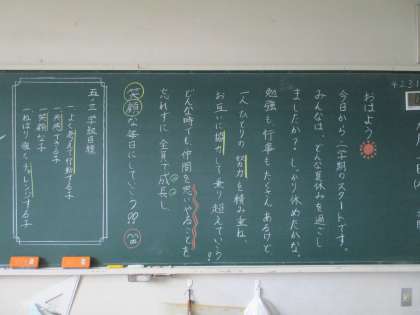 おはよう
今日から、二学期のスタートです。
みんなは、どんな夏休みを過ごし
ましたか？しっかり休めたかな。
勉強も行事もたくさんあるけど
一人ひとりの努力を積み重ね、
お互いに協力して乗り越えていこう!!
どんな時でも、仲間を思いやることを
忘れずに、全員で成長し、
笑顔な毎日にしていこう!!
五・三 学級目標
一、よく考えて行動する子
一、協力できる子
一、笑顔な子
一、ねばり強くチャレンジする子